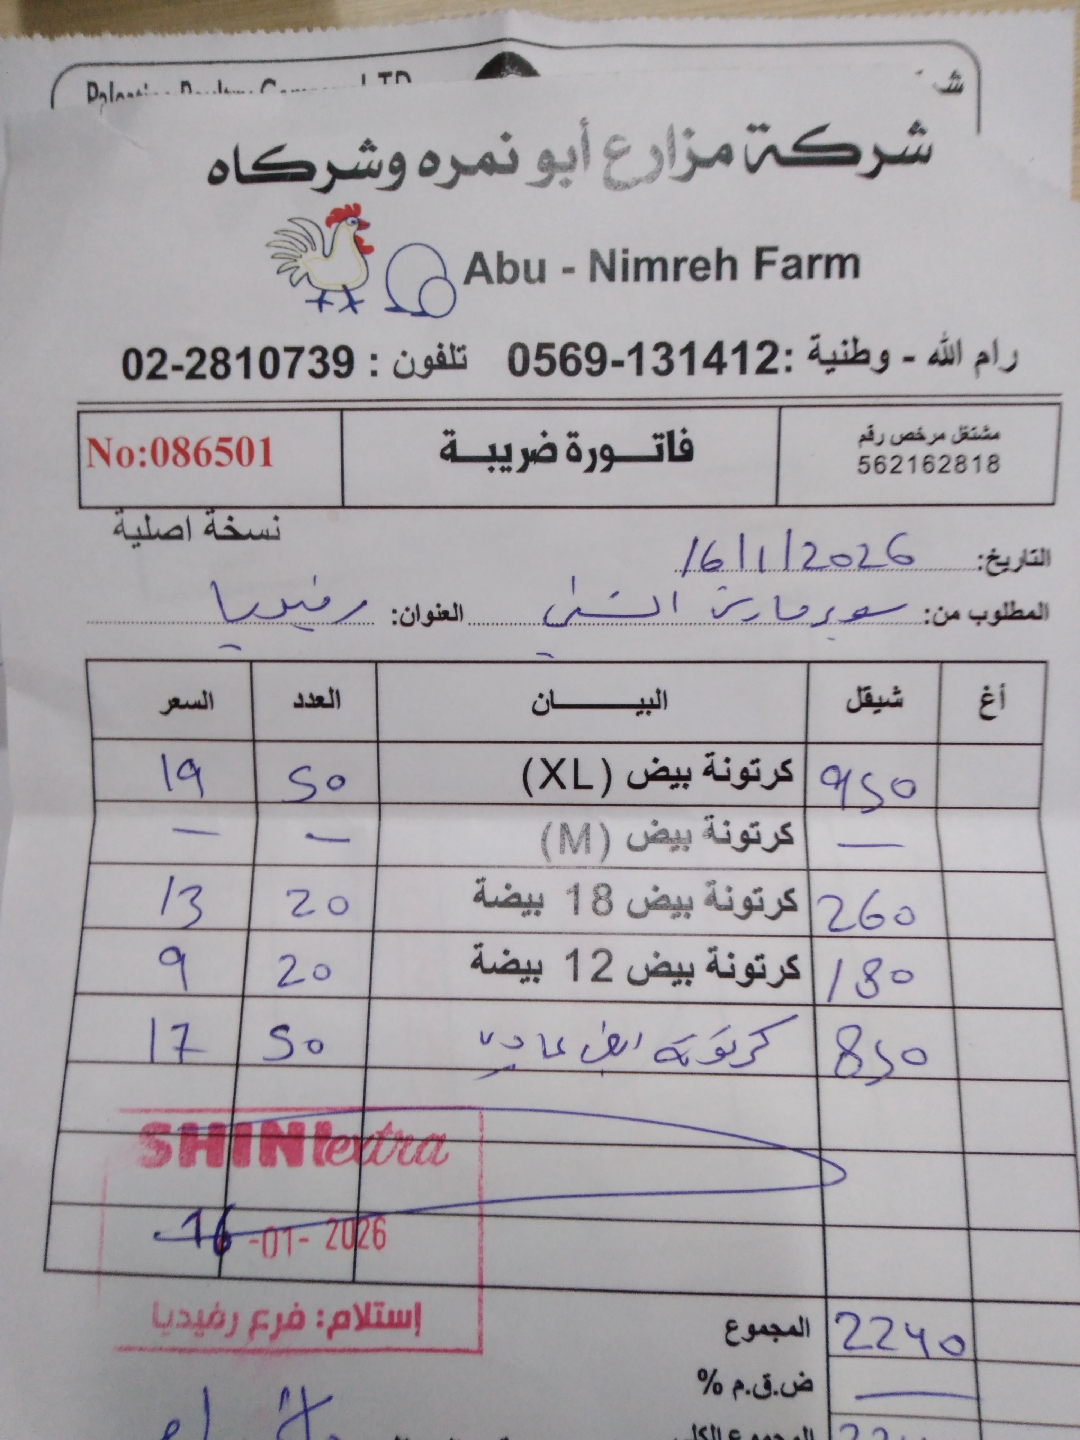 Palestine Poultry Company LTD
شركة مزارع أبو نمره وشركاه
Abu - Nimreh Farm
رام الله - وطنية :0569-131412 تلفون : 02-2810739
مشتغل مرخص رقم
562162818
فاتورة ضريبة
No:086501
نسخة اصلية
التاريخ: 16/1/2026
المطلوب من: سوبرماركت الشني العنوان: رفيديا
أغ شيقل البيان العدد السعر
950 كرتونة بيض (XL) 50 19
— كرتونة بيض (M) — —
260 كرتونة بيض 18 بيضة 20 13
180 كرتونة بيض 12 بيضة 20 9
850 كرتونة ابيض عادي 50 17
SHINI extra
16 -01- 2026
إستلام: فرع رفيديا
المجموع 2240
ض.ق.م % —
المجموع الكلي